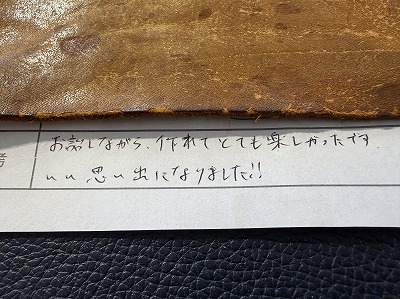 お話しながら、作れてとても楽しかったです.
いい思い出になりました!!